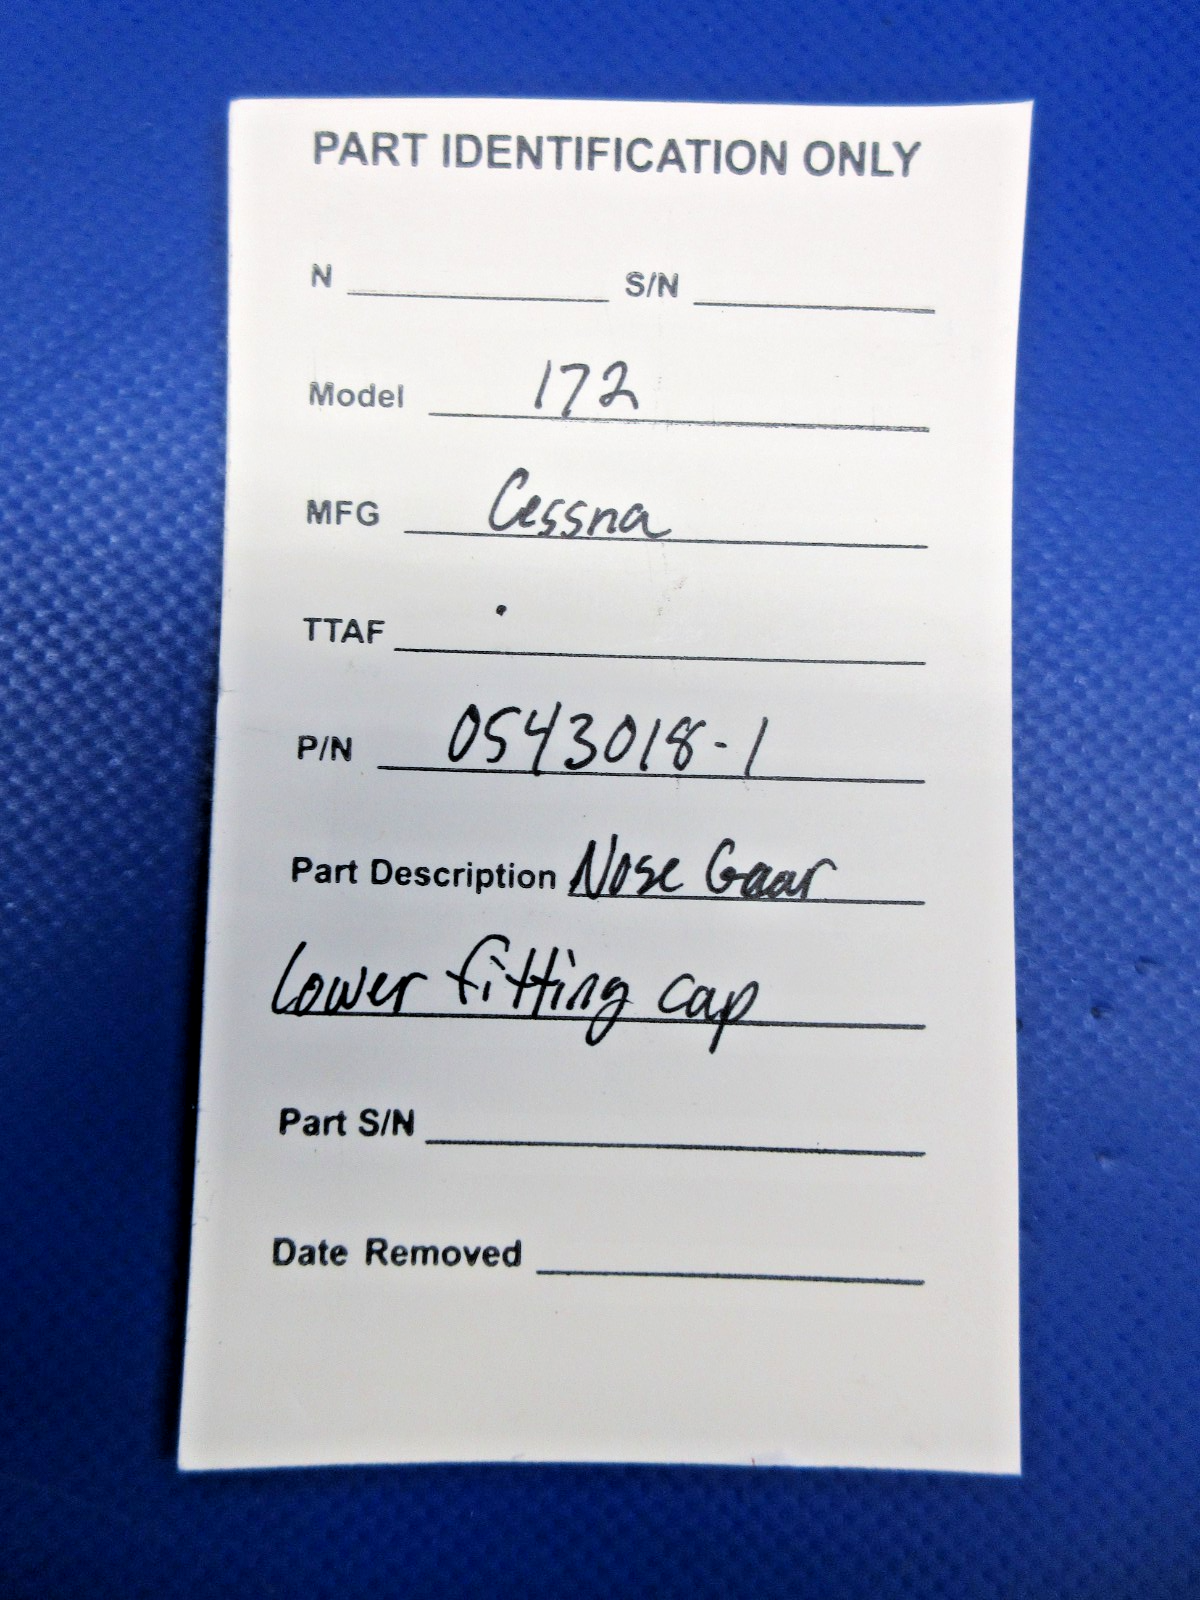 PART IDENTIFICATION ONLY
N S/N
Model 172
MFG Cessna
TTAF
P/N 0543018-1
Part Description Nose Gear
Lower fitting cap
Part S/N
Date Removed